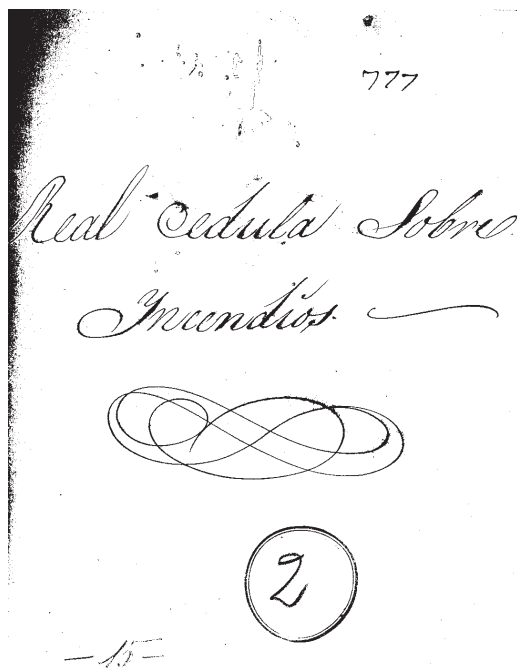 777
Real Cedula Sobre
Incendios.
2
— 15 —